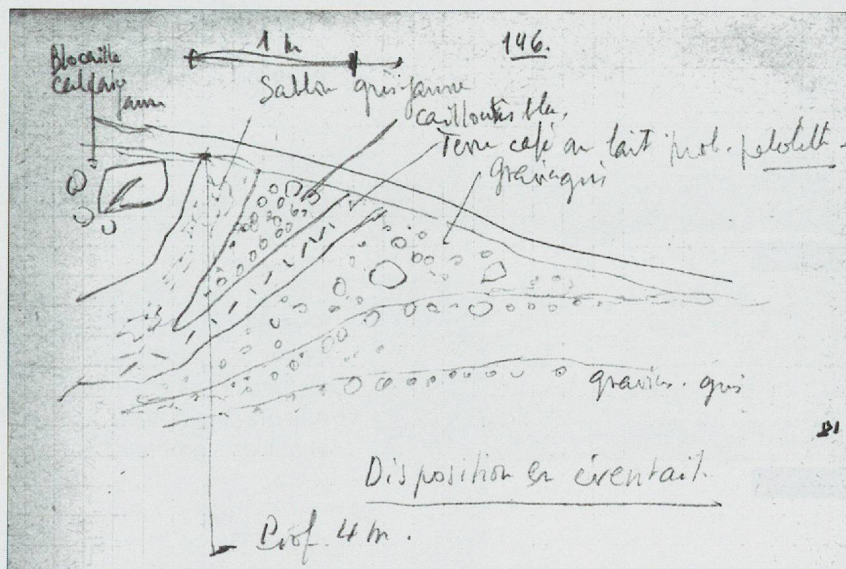 1 m
146.
Blocaille
calcaire
jaune
Sablon grès jaune
cailloutis blc.
Terre café au lait prob.
gravier gris
gravier gris
Disposition en éventail.
Prof. 4 m.